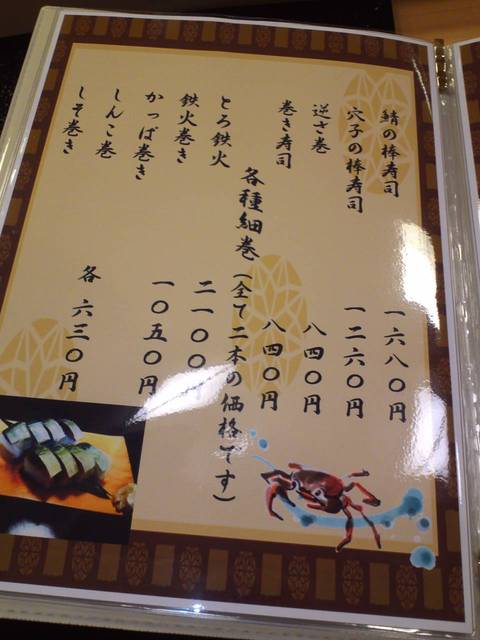 鯖の棒寿司 一六八〇円
穴子の棒寿司 一二六〇円
逆さ巻 八四〇円
巻き寿司 八四〇円
各種細巻(全て二本の価格です)
とろ鉄火 二一〇〇円
鉄火巻き 一〇五〇円
かっぱ巻き
しんこ巻
しそ巻き
各 六三〇円